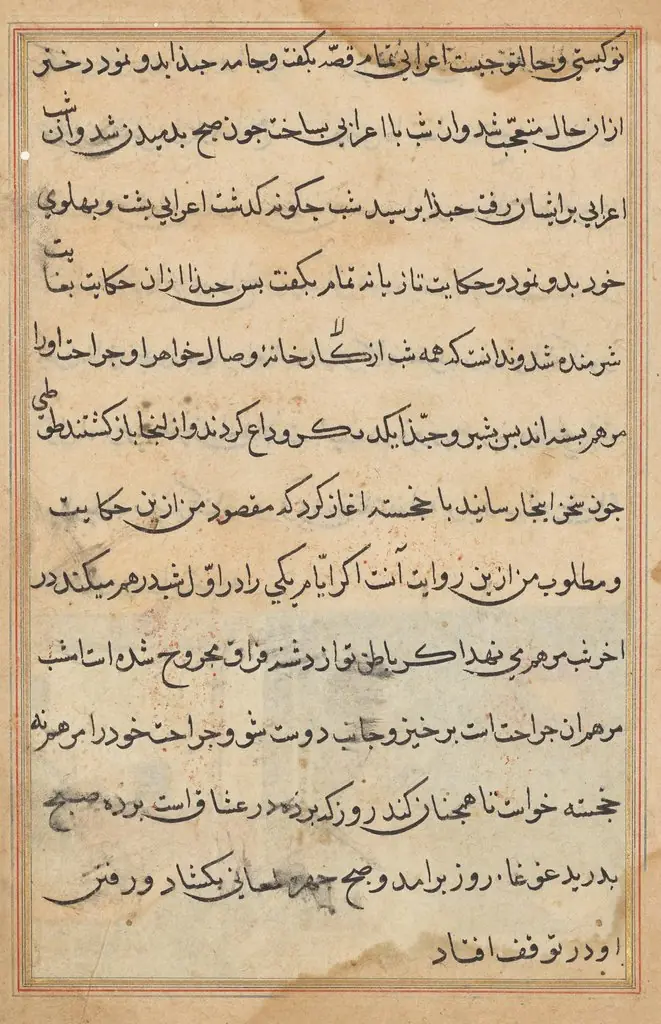 توکیستی و حال تو چیست اعرابی تمام قصّه بکفت و جامه جبذا بدو نمود دختر
ازان حال متعجّب شد وان شب با اعرابی بساخت جون صبح بدمیدن شد وان شب
اعرابی بر ایشان رفت حبذا برسید شب جکونه کدشت اعرابی بشت و بهلوی
خود بدو نمود و حکایت تازیانه تمام بکفت بس حبذا ازان حکایت بغایت
شرمنده شد وندانست که همه شب از کارخانهٔ وصال خواهر او جراحت اورا
مرهم بسته اند بس بشیر و حبّذا یکدیکر وداع کردند واز انجا باز کشتند طوطی
جون سخن اینجا رسانید با خجسته اغاز کرد که مقصود من ازین حکایت
و مطلوب من ازین روایت آنست اکر ایّام یکی را در اوّل شب درهم میکند در
اخر شب مرهم می نهد اکر باطن تو از دشنه فراق مجروح شده است امشب
مرهم ان جراحت است برخیز و جانب دوست شو و جراحت خود را مرهم نه
خجسته خواست تا همجنان کند روز که برده در عشاق است برده صبح
بدرید غوغاء روز برامد و صبح جهره بکشاد و رفتن
او در توقف افتاد